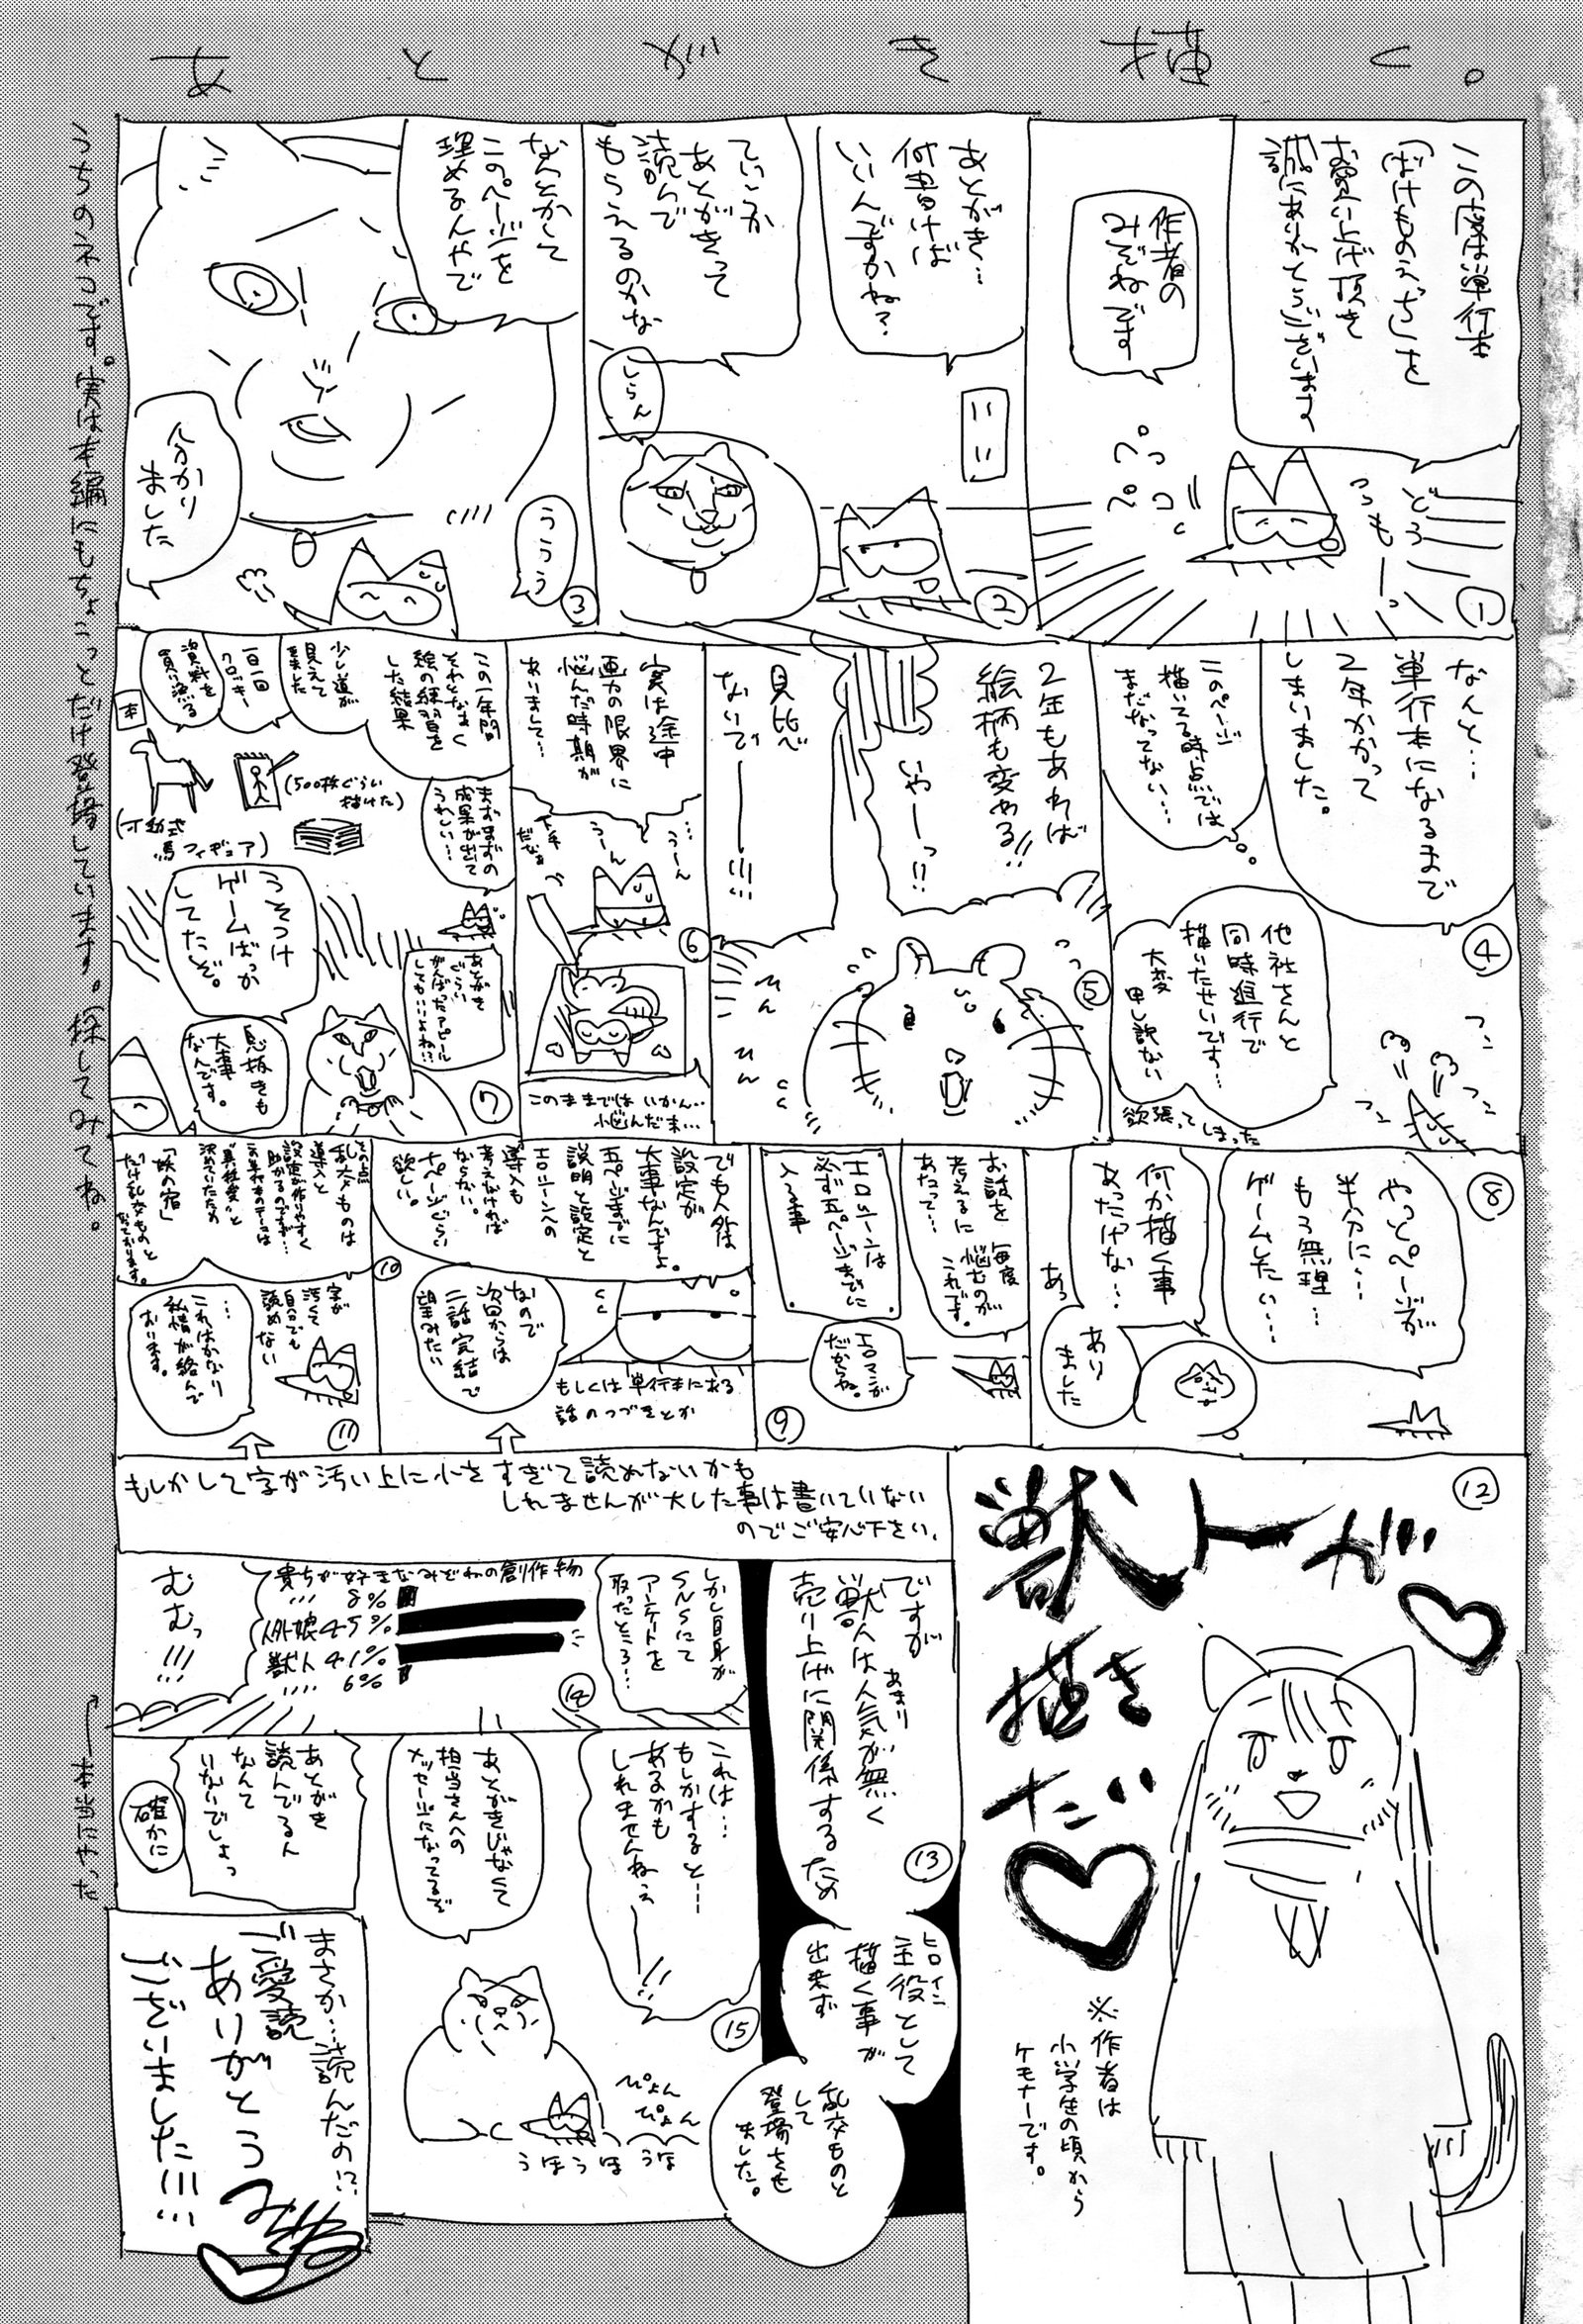 あとがき描く。
この度は単行本
「ばけものえっち」を
お買い上げ頂き
誠にありがとうございます
作者の
みぞねです
どう
もーっ
ペっ
ペコ
①
あとがき…
何書けば
いいんですかね？
ていうか
あとがきって
読んで
もらえるのかな
しらん
②
なんとかして
このページを
埋めるんやで
ううう
分かり
ました
③
なんと…
単行本になるまで
2年かかって
しまいました。
このページ
描いてる時点では
まだなってない…
他社さんと
同時進行で
描いたせいです…
大変
申し訳ない
欲張ってしまった
④
2年もあれば
絵柄も変わる!!
いやーっ!!
見比べ
ないでーーー!!!
ひん
ひん
⑤
実は途中
画力の限界に
悩んだ時期が
ありまして…
…うーん
うーん
下手
だなぁ
このままではいかん…
悩んだ末…
⑥
この一年間
それとなく
絵の練習を
した結果
少し道が
見えて
来ました
一日一回
クロッキー
資料を
買い漁る
本
(500枚ぐらい
描けた)
(可動式
馬フィギュア)
まずまずの
成果が出て
うれしい…
あとがき
ぐらい
がんばったアピール
してもいいよね…
うそつけ
ゲームばっか
してたぞ。
息抜きも
大事
なんです。
⑦
やっとページが
半分に…
もう無理…
ゲームしたい…
何か描く事
あったけな…
あっ
あり
ました
⑧
お話を
考えるに
あたって…
毎度
悩むのが
これです。
エロシーンは
必ず五ページまでに
入る事
エロマンガ
だからね。
⑨
でも人外は
設定が
大事なんですよ。
五ページまでに
説明と設定と
エロシーンへの
導入も
考えなければ
ならない。
十ページぐらい
欲しい。
なので
次回からは
二話完結で
望みたい
もしくは単行本にある
話のつづきとか
⑩
その点
乱交ものは
導入と
設定が作りやすく
助かるのです…
この単行本のテーマは
"異種愛"と
決めていたため
「妖の宿」
だけ乱交ものと
なっております。
字が
汚くて
自分でも
読めない
…
これはかなり
私情が絡んで
おります。
⑪
もしかして字が汚い上に小さすぎて読めないかも
しれませんが大した事は書いていない
のでご安心下さい。
⑫
獣トーが
描き
たい
※作者は
小学生の頃から
ケモナーです。
ですが
獣人はあまり人気が無く
売り上げに関係するため
⑬
主役として
ヒロイン
描く事が
出来ず
乱交ものと
して
登場させ
ました。
しかし自身が
SNSにて
アンケートを
取ったところ…
貴方が好きなみぞねの創作物
… 8%
人外娘 45%
獣人 41%
… 6%
むむっ!!!
⑭
これは…
もしかすると…
あるかも
しれませんねぇーー!!
あとがきじゃなくて
担当さんへの
メッセージになってるぞ
ぴょん
ぴょん
うほうほ うほ
⑮
あとがき
読んでるん
なんて
いないでしょっ
確かに
まさか…読んだの!?
ご愛読
ありがとう
ございました!!!
みぞね
うちのネコです。実は本編にもちょこっとだけ登場しています。探してみてね。